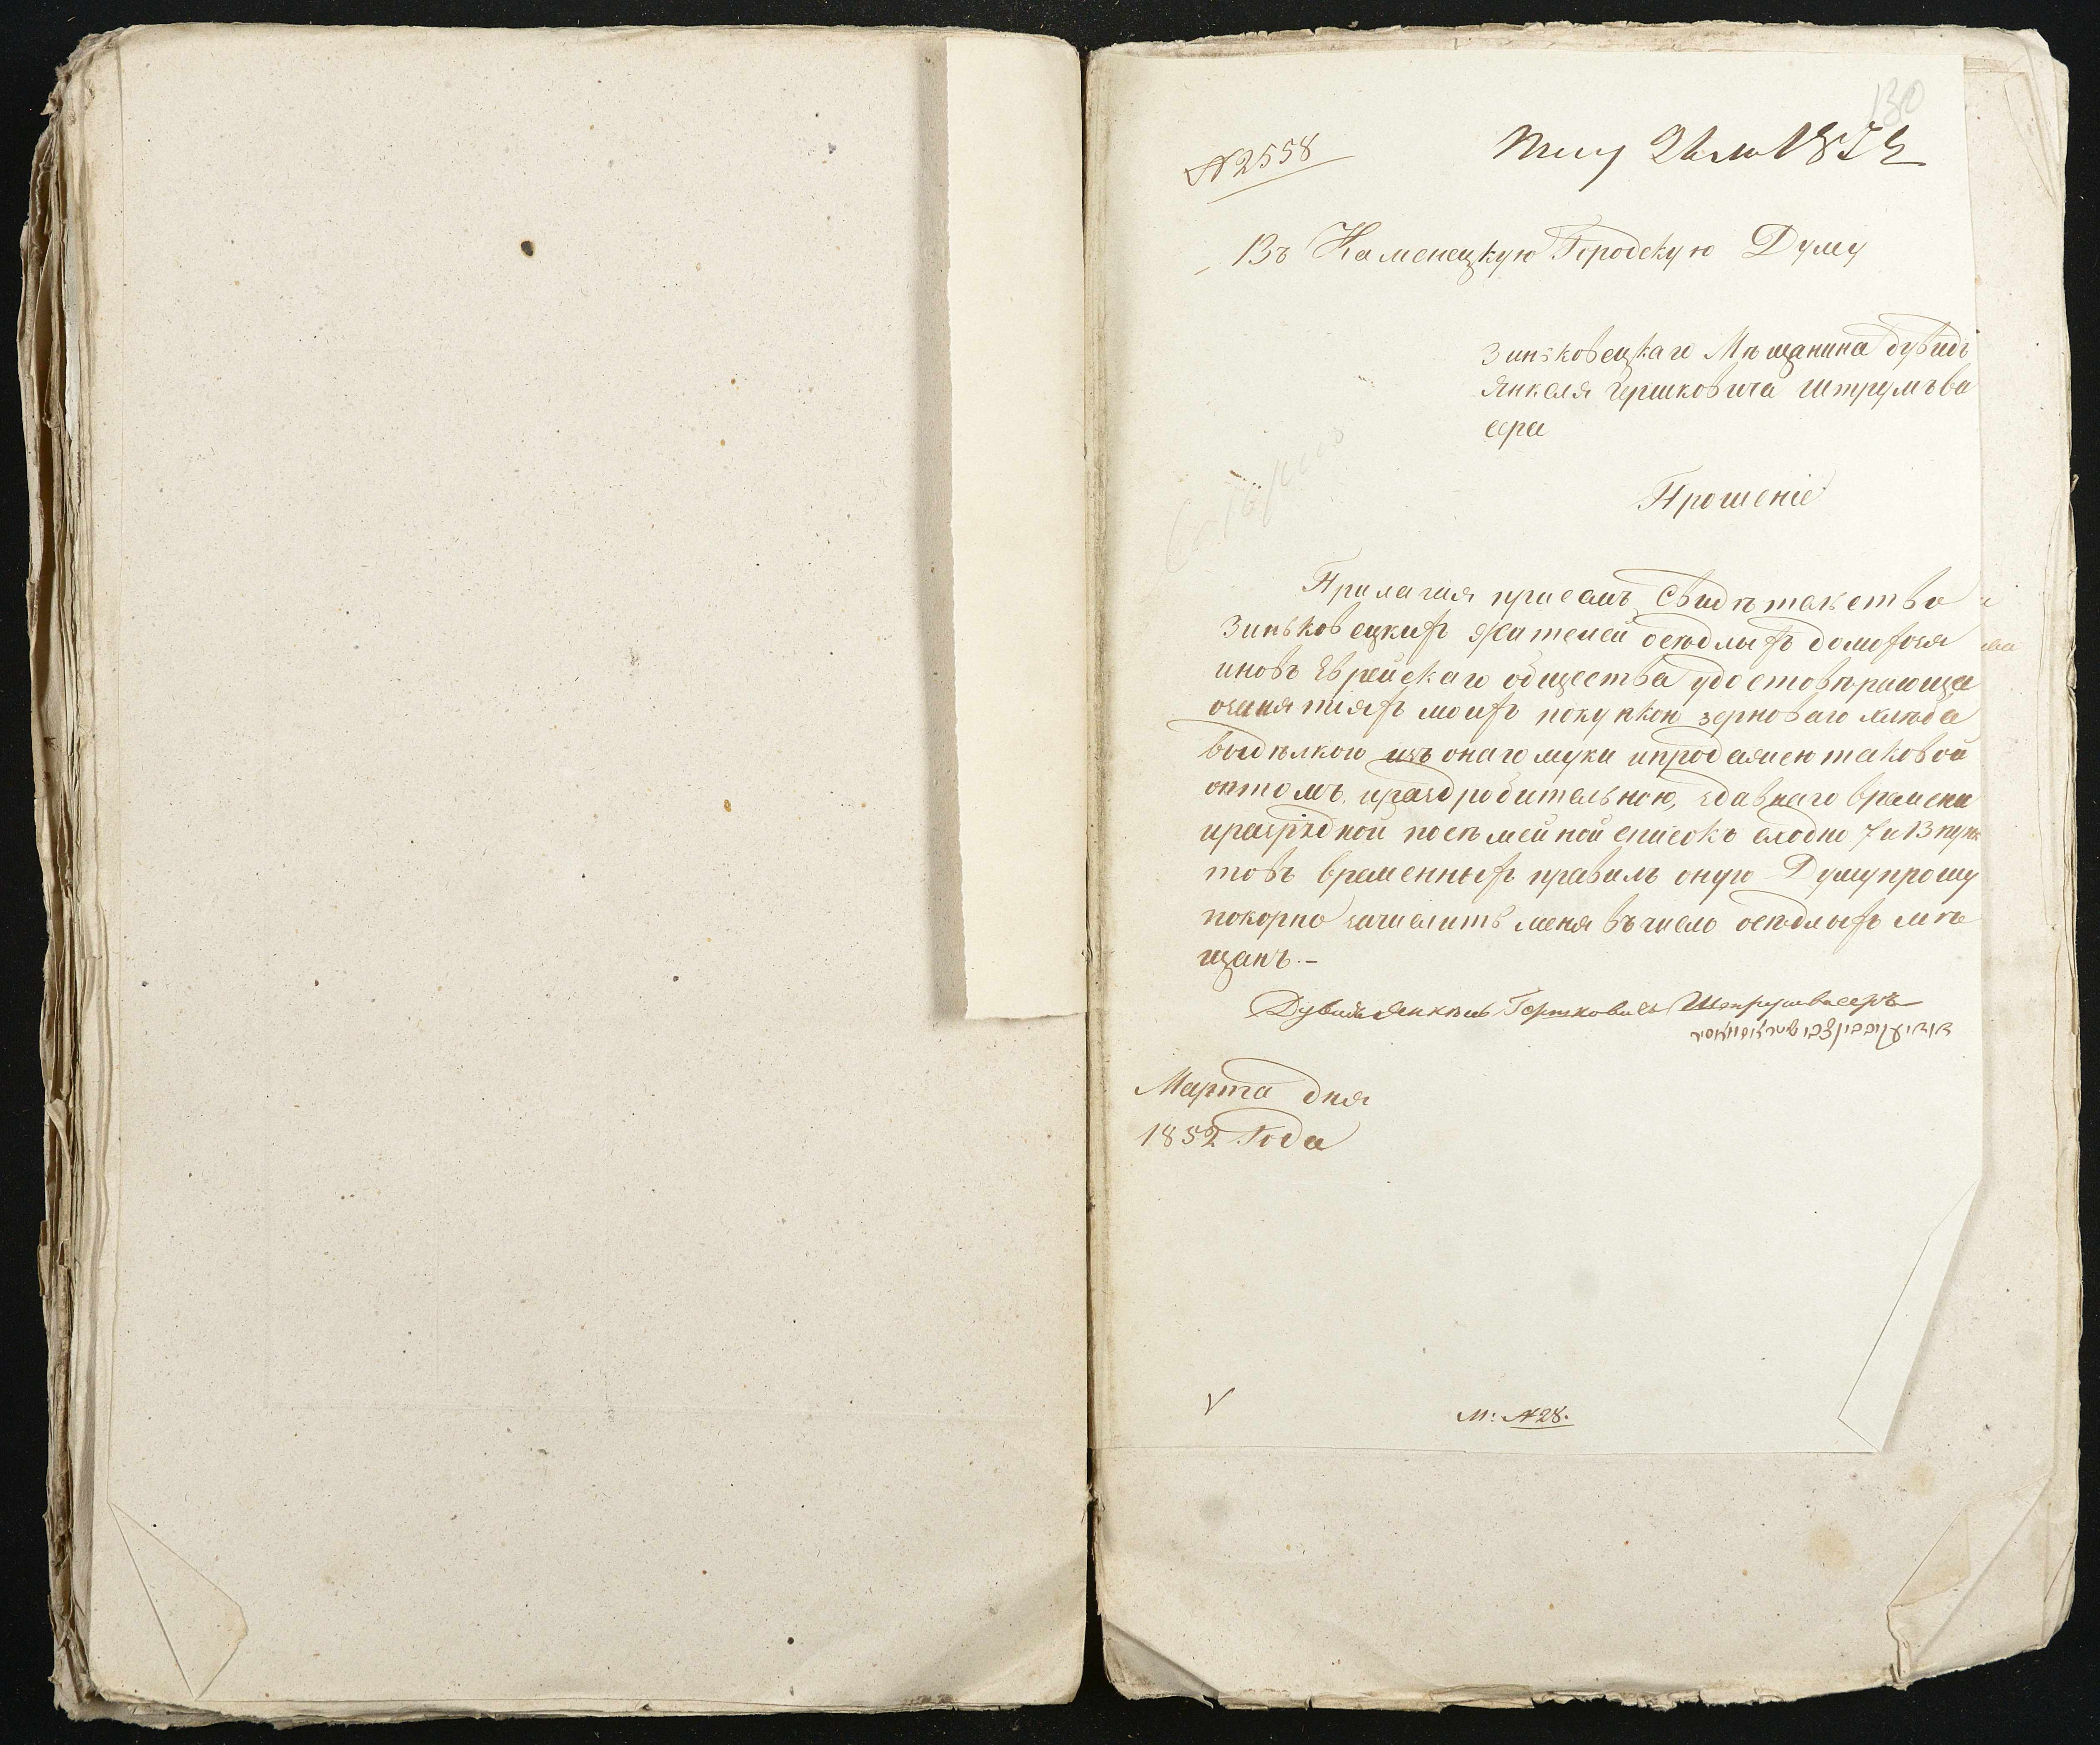 130
№ 2558
1852
Въ Каменецкую Городскую Думу
Зиньковецкаго Мѣщанина Дувидъ
Янкеля Гершковича Штрумъва
сера
Прошеніе
Прилагая присемъ Свидѣтельство
Зиньковецкихъ жителей осѣдлыхъ домохозя
иновъ Еврейскаго общества удостовѣрающе
озанятіяхъ моихъ покупкою зерноваго хлѣба
выдѣлкою изъ онаго муки ипродажею таковой
оптомъ ираздробительною, здавнаго времени
иразрядной посѣмейной списокъ слодно 7 и 13 пунк
товъ временныхъ правилъ оную Думу прошу
покорно зачислить меня въ число осѣдлыхъ мѣ
щанъ.-
Дувидъ Янкель Гершковичъ Штрумвасеръ
Марта дня
1852 Года
М: № 28.